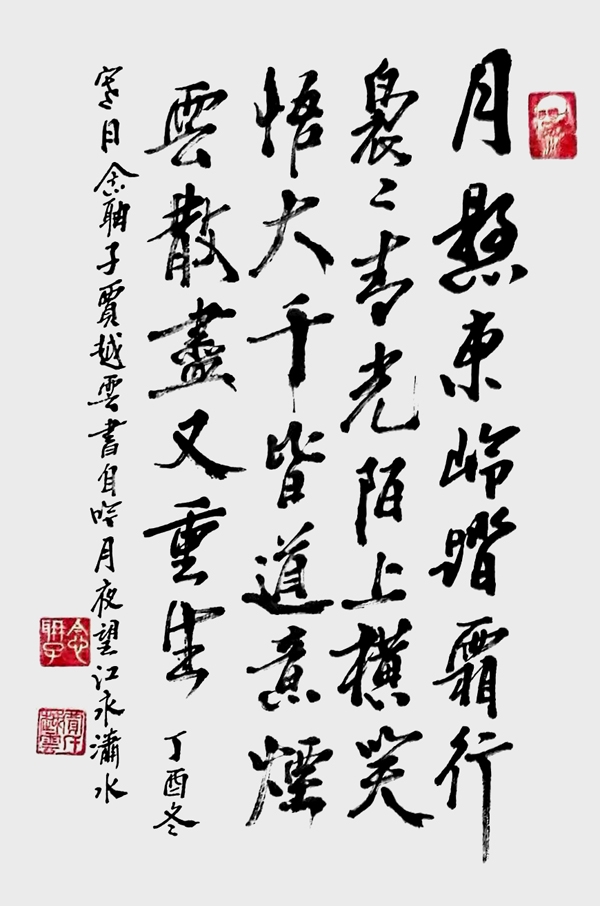 月懸東岭踏霜行
裊〻青光陌上横笑
悟大千皆道意煙
雲散盡又重生
丁酉冬
寒月念聃子賈越雲書自吟月夜望江永瀟水
念聃子